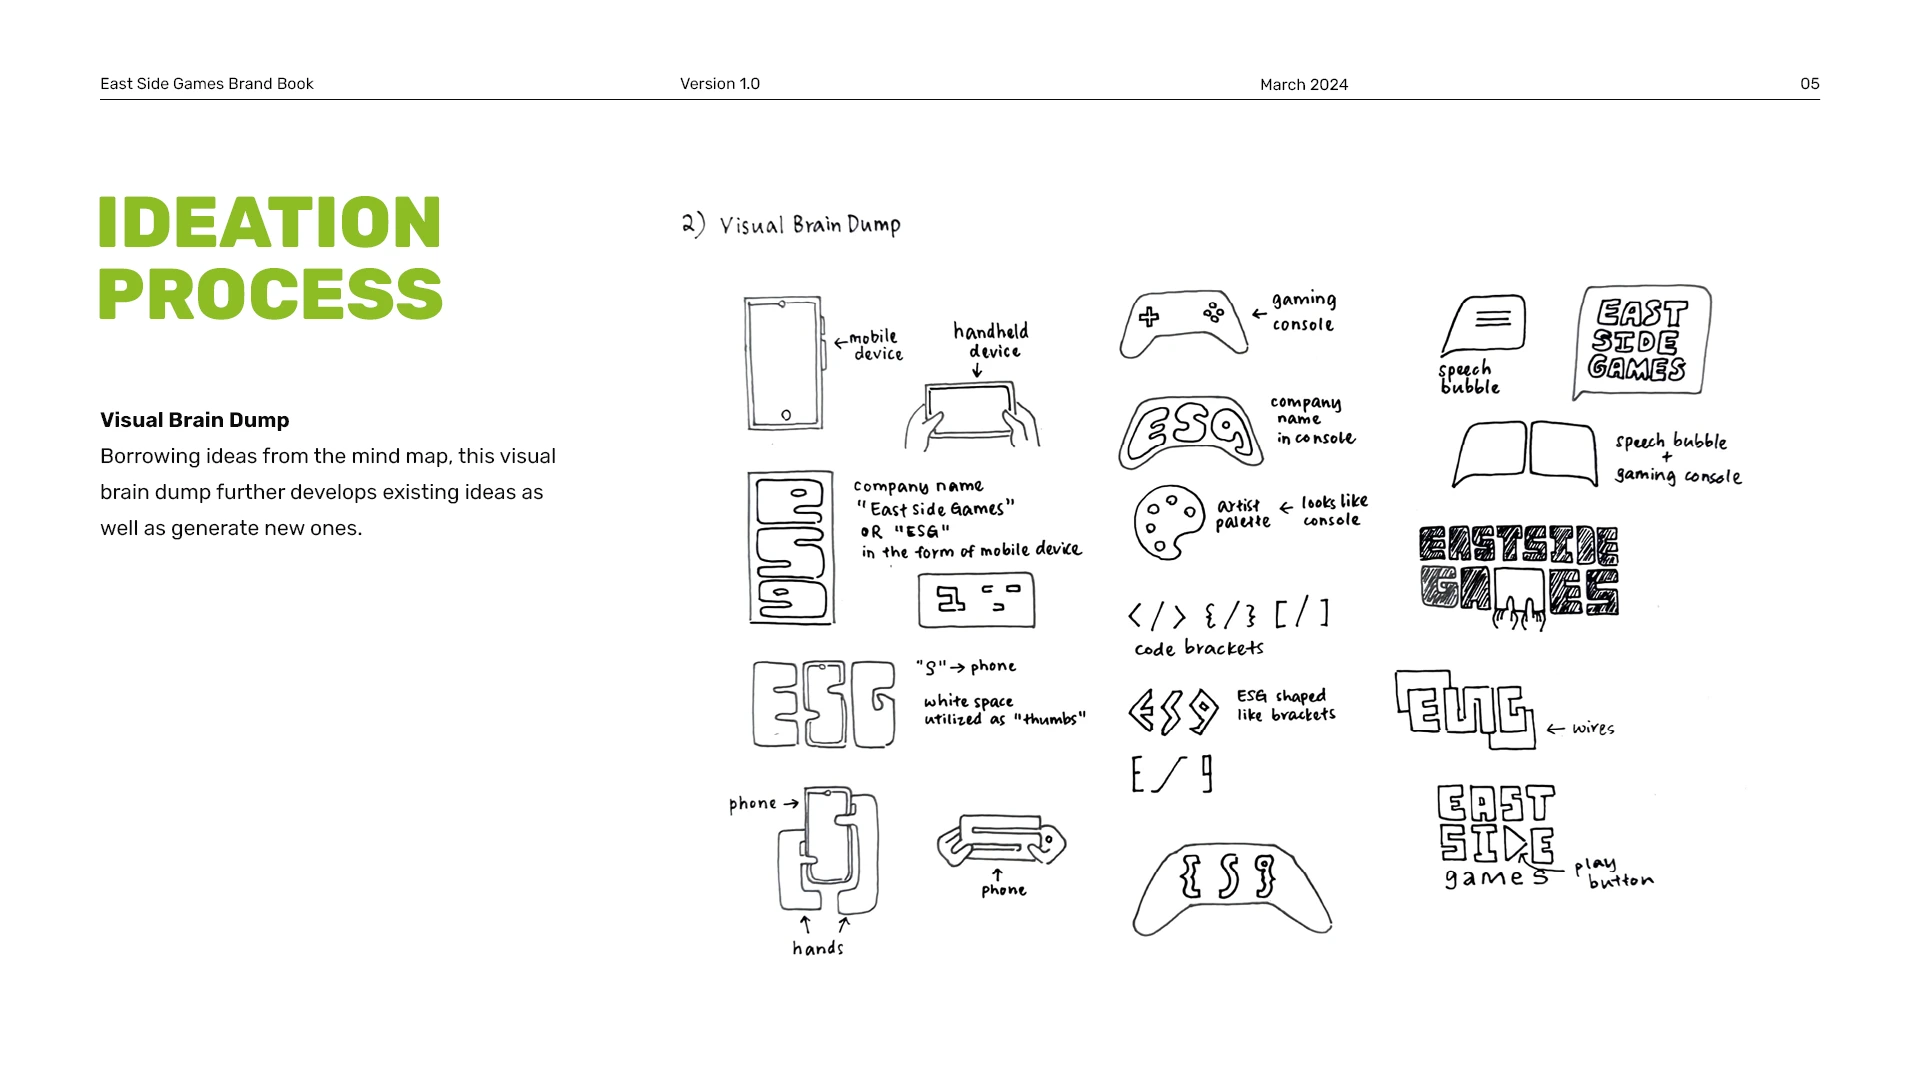 East Side Games Brand Book
Version 1.0
March 2024
05
IDEATION
PROCESS
Visual Brain Dump
Borrowing ideas from the mind map, this visual
brain dump further develops existing ideas as
well as generate new ones.
2) Visual Brain Dump
←mobile
device
handheld
device
↓
esg
company name
"East Side Games"
OR "ESG"
in the form of mobile device
ESG
"S"→ phone
white space
utilized as "thumbs"
phone →
↑ ↑
hands
↑
phone
← gaming
console
ESg
company
name
in console
artist
palette
← looks like
console
</> {/} [/]
code brackets
ESg
ESG shaped
like brackets
E/g
{Sg
speech
bubble
EAST
SIDE
GAMES
speech bubble
+
gaming console
EASTSIDE
GAMES
ESG
← wires
EAST
SIDE
games
play
button